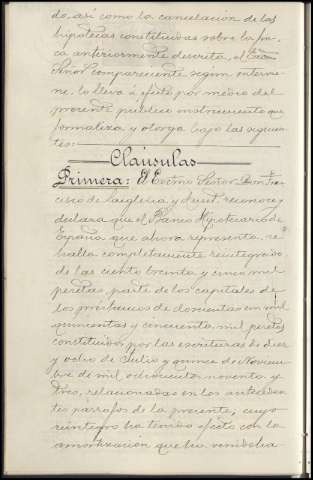 do, así como la cancelación de las
hipotecas constituidas sobre la fin-
ca anteriormente descrita, el Excmo
Señor compareciente, según intervie-
ne, lo lleva á efecto por medio del
presente público instrumento que
formaliza y otorga bajo las siguien-
tes:
Cláusulas
Primera: El Excmo Señor Don Fran-
cisco de Laiglesia y Auset, reconoce y
declara que el Banco Hipotecario de
España que ahora representa, se
halla completamente reintegrado
de las ciento treinta y cinco mil
pesetas, parte de los capitales de
los préstamos de doscientas mil
quinientas y cincuenta mil pesetas
constituidos por las escrituras de diez
y ocho de Julio y quince de Noviem-
bre de mil ochocientos noventa y
tres, relacionadas en los anteceden-
tes párrafos de la presente, cuyo
reintegro ha tenido efecto con la
amortización que ha venido ha-